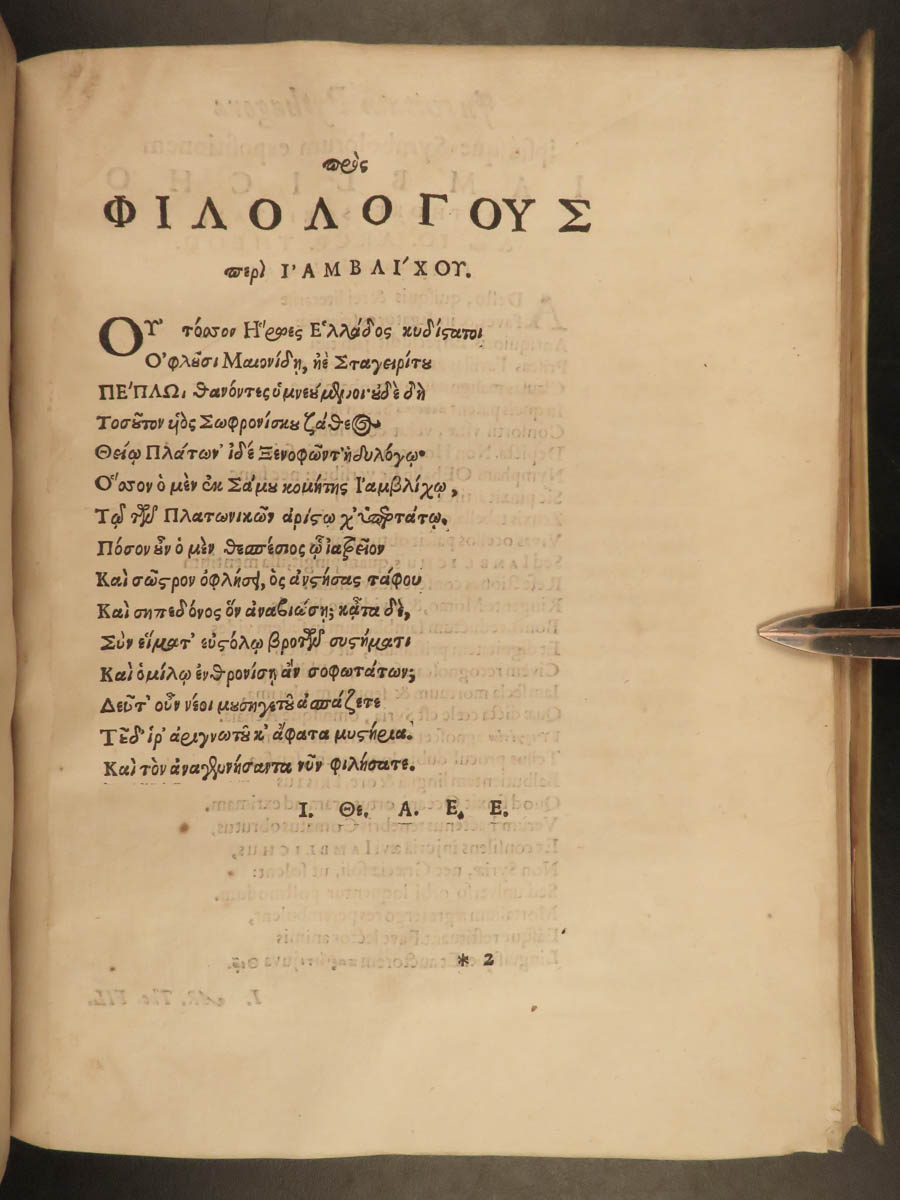 πρὸς
ΦΙΛΟΛΟΓΟΥΣ
περὶ ἸΑΜΒΛΊΧΟΥ.
ΟΥ̓ τόσσον Ἥρωες Ἑλλάδος κυδίςατοι
Ὀφλοῦσι Μαιονίδῃ, ἠὲ Σταγειρίτου
ΠΕΠΛΩι θανόντες ὑμνεύμενοι· οὐδὲ δὴ
Τοσοῦτον ἠῢς Σωφρονίσκου ζάθεος
Θείῳ Πλάτων' ἰδέ Ξενοφῶντ' ἡδυλόγῳ·
Ὅσσον ὁ μὲν ἐκ Σάμου κομήτης Ἰαμβλίχῳ,
Τῷ τῶν Πλατωνικῶν ἀρίςῳ χ' ὑπερτάτῳ.
Πόσον οὖν ὁ μὲν θεσπέσιος
Καὶ σῶςρον ὀφλήσει, ὃς ἀνςήσας τάφου
Καὶ σηπεδόνος ὃν ἀναβιώσῃ; κᾆτα δὲ,
Σὺν εἵματ' εὐςόλῳ βροτῶν συςήματι
Καὶ ὁμίλῳ ἐνθρονίσῃ ἂν σοφωτάτων;
Δεῦτ' οὖν νέοι μουσηγέτου ἀσπάζετε
Τοῦδ' ἱρ' ἀριγνωτοῦ κ' ἄφατα μυςήρια.
Καὶ τὸν ἀναγεννήσαντα νῦν φιλήσατε.
Ι. Θε. Α. Ε. Ε.
* 2